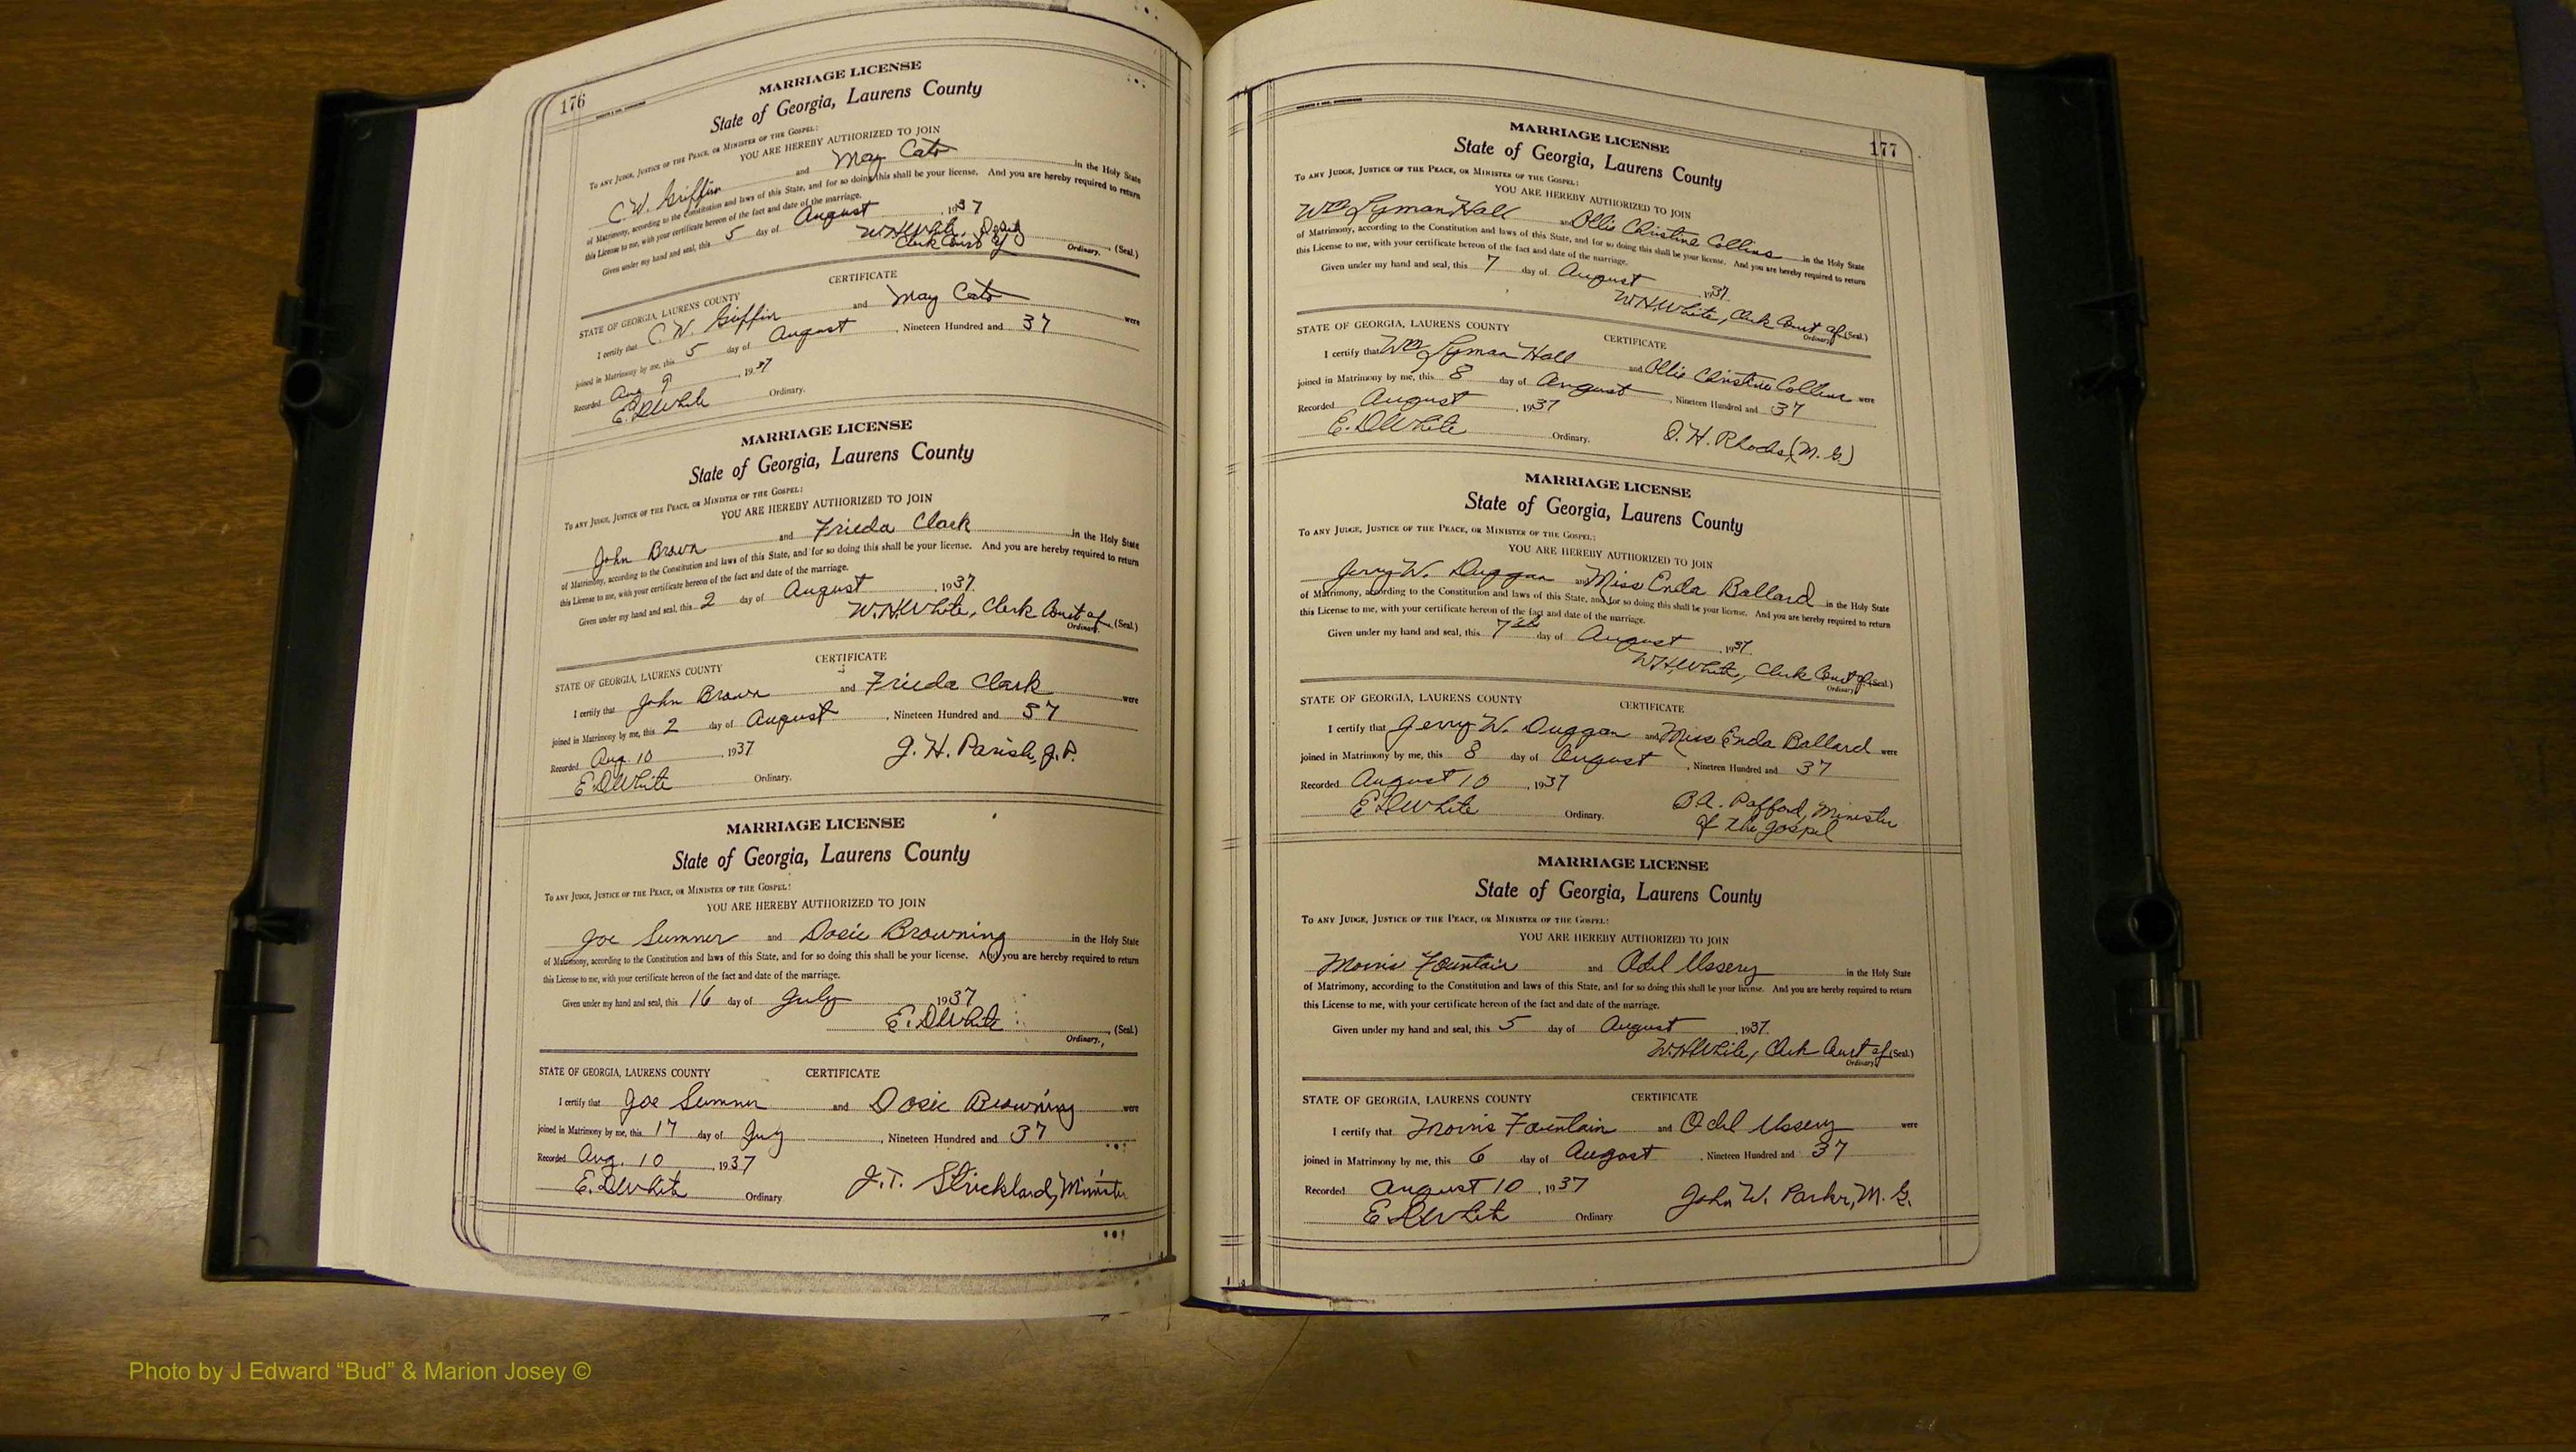 176
MARRIAGE LICENSE
State of Georgia, Laurens County
To any Judge, Justice of the Peace, or Minister of the Gospel:
YOU ARE HEREBY AUTHORIZED TO JOIN
C. W. Griffin and May Cato in the Holy State
of Matrimony, according to the Constitution and laws of this State, and for so doing this shall be your license. And you are hereby required to return
this License to me, with your certificate hereon of the fact and date of the marriage.
Given under my hand and seal, this 5 day of August, 1937
W.H.White,
Clerk Court of Ordinary. (Seal.)
CERTIFICATE
STATE OF GEORGIA, LAURENS COUNTY
I certify that C. W. Griffin and May Cato were
joined in Matrimony by me, this 5 day of August, Nineteen Hundred and 37
Recorded Aug 9, 1937
E.DWhite Ordinary.
MARRIAGE LICENSE
State of Georgia, Laurens County
To any Judge, Justice of the Peace, or Minister of the Gospel:
YOU ARE HEREBY AUTHORIZED TO JOIN
John Brown and Frieda Clark in the Holy State
of Matrimony, according to the Constitution and laws of this State, and for so doing this shall be your license. And you are hereby required to return
this License to me, with your certificate hereon of the fact and date of the marriage.
Given under my hand and seal, this 2 day of August, 1937.
W.HWhite, Clerk Court of Ordinary. (Seal.)
CERTIFICATE
STATE OF GEORGIA, LAURENS COUNTY
I certify that John Brown and Frieda Clark were
joined in Matrimony by me, this 2 day of August, Nineteen Hundred and 37
Recorded Aug. 10, 1937 J. H. Parish, J.P.
E.DWhite Ordinary.
MARRIAGE LICENSE
State of Georgia, Laurens County
To any Judge, Justice of the Peace, or Minister of the Gospel:
YOU ARE HEREBY AUTHORIZED TO JOIN
Joe Sumner and Dosie Browning in the Holy State
of Matrimony, according to the Constitution and laws of this State, and for so doing this shall be your license. And you are hereby required to return
this License to me, with your certificate hereon of the fact and date of the marriage.
Given under my hand and seal, this 16 day of July 1937
E.DWhite, (Seal.)
Ordinary.
STATE OF GEORGIA, LAURENS COUNTY CERTIFICATE
I certify that Joe Sumner and Dosie Browning were
joined in Matrimony by me, this 17 day of July, Nineteen Hundred and 37
Recorded Aug. 10, 1937
E.DWhite Ordinary J.T. Strickland, Minister
177
MARRIAGE LICENSE
State of Georgia, Laurens County
To any Judge, Justice of the Peace, or Minister of the Gospel:
YOU ARE HEREBY AUTHORIZED TO JOIN
Wm Lyman Hall and Ollie Christine Collins in the Holy State
of Matrimony, according to the Constitution and laws of this State, and for so doing this shall be your license. And you are hereby required to return
this License to me, with your certificate hereon of the fact and date of the marriage.
Given under my hand and seal, this 7 day of August, 1937.
W.H.White, Clerk Court of Ordinary (Seal.)
STATE OF GEORGIA, LAURENS COUNTY CERTIFICATE
I certify that Wm Lyman Hall and Ollie Christine Collins were
joined in Matrimony by me, this 8 day of August, Nineteen Hundred and 37
Recorded August, 1937
E.DWhite Ordinary. O. H. Rhodes, (M. G.)
MARRIAGE LICENSE
State of Georgia, Laurens County
To any Judge, Justice of the Peace, or Minister of the Gospel:
YOU ARE HEREBY AUTHORIZED TO JOIN
Jerry W. Duggan and Miss Enda Ballard in the Holy State
of Matrimony, according to the Constitution and laws of this State, and for so doing this shall be your license. And you are hereby required to return
this License to me, with your certificate hereon of the fact and date of the marriage.
Given under my hand and seal, this 7th day of August, 1937.
W.H.White, Clerk Court of Ordinary (Seal.)
STATE OF GEORGIA, LAURENS COUNTY CERTIFICATE
I certify that Jerry W. Duggan and Miss Enda Ballard were
joined in Matrimony by me, this 8 day of August, Nineteen Hundred and 37
Recorded August 10, 1937
E.DWhite Ordinary. B.A. Pafford, Minister
of the gospel
MARRIAGE LICENSE
State of Georgia, Laurens County
To any Judge, Justice of the Peace, or Minister of the Gospel:
YOU ARE HEREBY AUTHORIZED TO JOIN
Morris Fountain and Odel Ussery in the Holy State
of Matrimony, according to the Constitution and laws of this State, and for so doing this shall be your license. And you are hereby required to return
this License to me, with your certificate hereon of the fact and date of the marriage.
Given under my hand and seal, this 5 day of August, 1937.
W.H.White, Clerk Court of Ordinary (Seal.)
STATE OF GEORGIA, LAURENS COUNTY CERTIFICATE
I certify that Morris Fountain and Odel Ussery were
joined in Matrimony by me, this 6 day of August, Nineteen Hundred and 37
Recorded August 10, 1937 John W. Parker, M. G.
E.DWhite Ordinary
Photo by J Edward “Bud” & Marion Josey ©